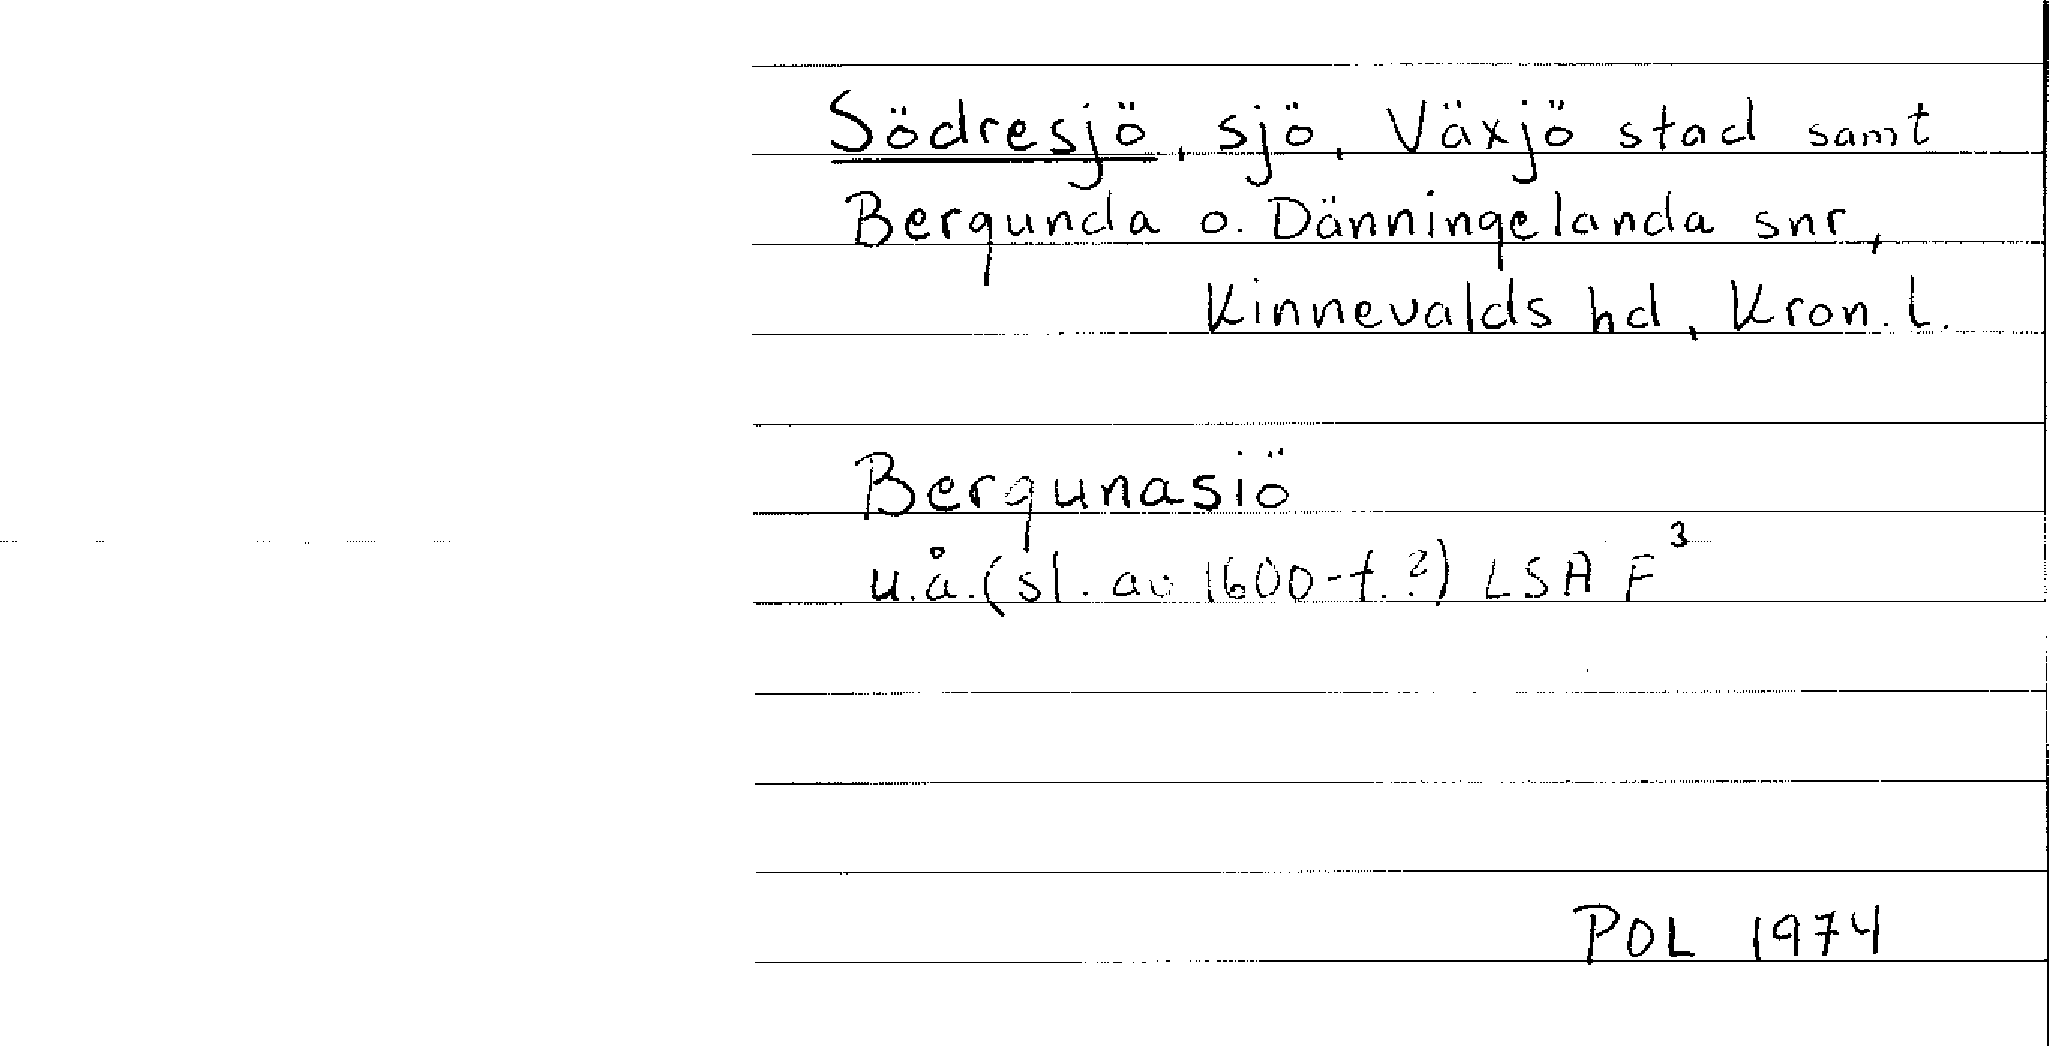 Södresjö, sjö, Växjö stad samt
Bergunda o. Dänningelanda snr,
Kinnevalds hd, Kron. l.
Bergunasiö
u.å. (sl. av 1600-t.?) LSA F³
POL 1974